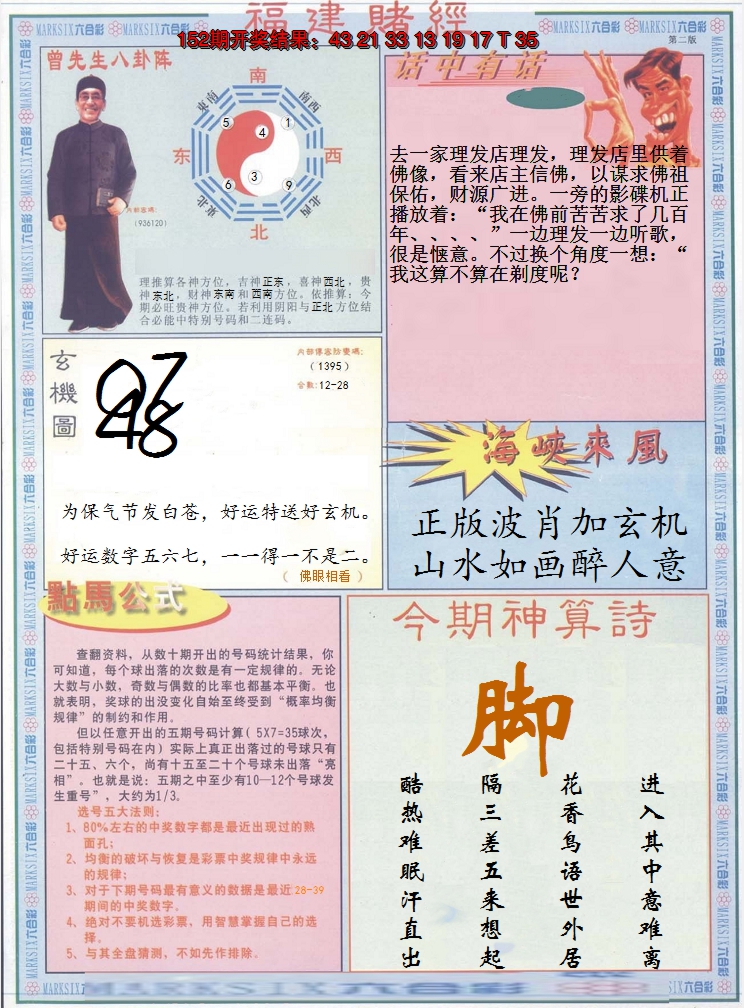 福建賭經
152期开奖结果：43 21 33 13 19 17 T 35
第二版
MARKSIX六合彩
曾先生八卦阵
南
东南
南西
5
4
1
东
西
6
3
9
东北
北西
北
内部密碼：
（936120）
理推算各神方位，吉神正东，喜神西北，贵
神东北，财神东南和西南方位。依推算：今
期必旺贵神方位。若利用阴阳与正北方位结
合必能中特别号码和二连码。
话中有话
去一家理发店理发，理发店里供着
佛像，看来店主信佛，以谋求佛祖
保佑，财源广进。一旁的影碟机正
播放着：“我在佛前苦苦求了几百
年、、、、”一边理发一边听歌，
很是惬意。不过换个角度一想：“
我这算不算在剃度呢？
玄機圖
内部傳密防變碼：
（1395）
合数：12-28
为保气节发白苍，好运特送好玄机。
好运数字五六七，一一得一不是二。
（ 佛眼相看 ）
海峽來風
正版波肖加玄机
山水如画醉人意
點馬公式
查翻资料，从数十期开出的号码统计结果，你
可知道，每个球出落的次数是有一定规律的。无论
大数与小数，奇数与偶数的比率也都基本平衡。也
就表明，奖球的出没变化自始至终受到“概率均衡
规律”的制约和作用。
但以任意开出的五期号码计算（5X7=35球次，
包括特别号码在内）实际上真正出落过的号球只有
二十五、六个，尚有十五至二十个号球未出落“亮
相”。也就是说：五期之中至少有10—12个号球发
生重号”，大约为1/3。
选号五大法则：
1、80%左右的中奖数字都是最近出现过的熟
面孔；
2、均衡的破坏与恢复是彩票中奖规律中永远
的规律；
3、对于下期号码最有意义的数据是最近28-39
期间的中奖数字。
4、绝对不要机选彩票，用智慧掌握自己的选
择。
5、与其全盘猜测，不如先作排除。
今期神算詩
脚
进入其中意难离
花香鸟语世外居
隔三差五来想起
酷热难眠汗直出